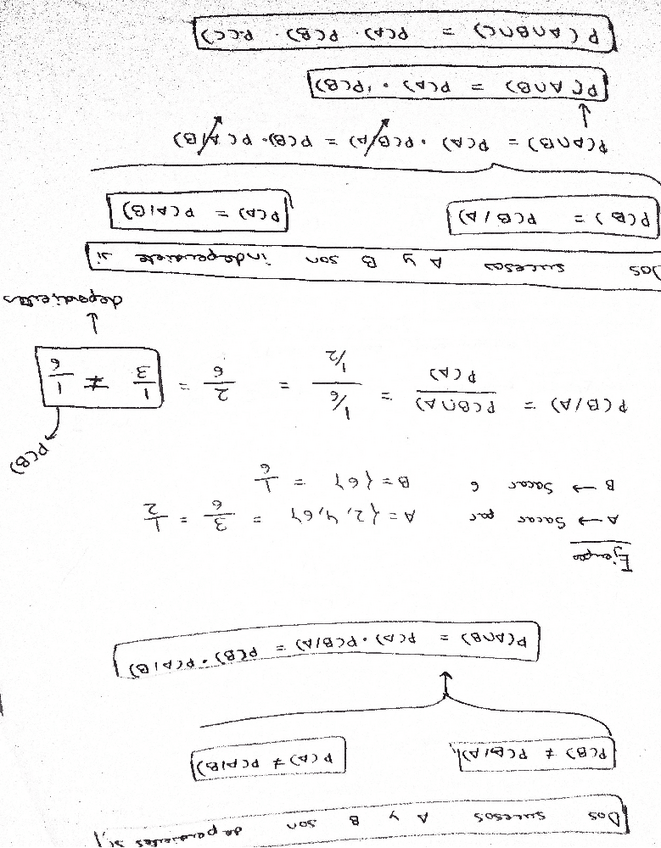 Dos sucesos A y B son dependientes si,
P(B) ≠ P(B/A) P(A) ≠ P(A/B)
P(A∩B) = P(A)·P(B/A) = P(B)·P(A/B)
Ejemplo
A → Sacar par A={2,4,6} = 3/6 = 1/2
B → Sacar 6 B={6} = 1/6
P(B)
P(B/A) = P(B∩A)/P(A) = 1/6 / 1/2 = 2/6 = 1/3 ≠ 1/6
dependientes
Dos sucesos A y B son independiente si
P(B) = P(B/A) P(A) = P(A/B)
P(A∩B) = P(A)·P(B/A) = P(B)·P(A/B)
P(A∩B) = P(A)·P(B)
P(A∩B∩C) = P(A)·P(B)·P(C)